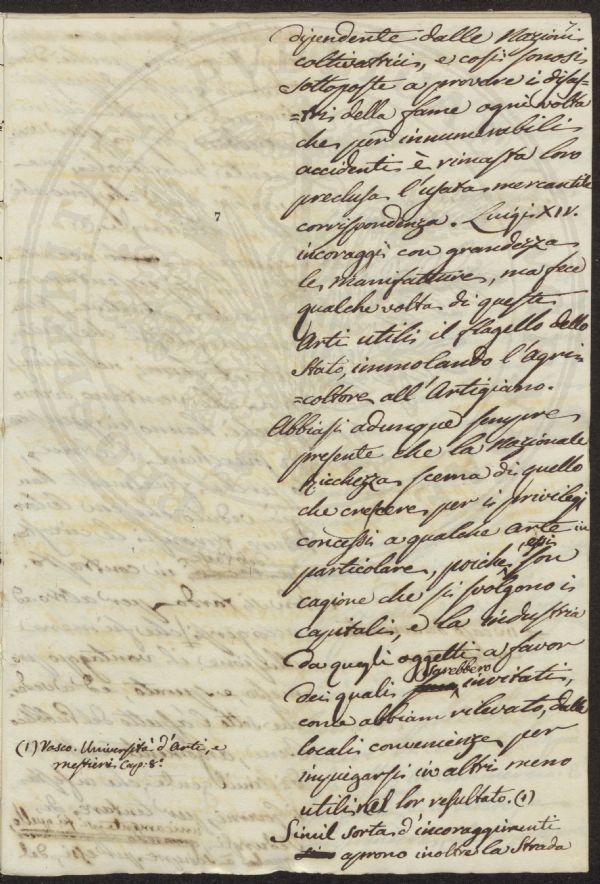 dipendente dalle Nazioni
coltivatrici, e così sonosi
sottoposte a provare i disas=
=tri della fame ogni volta
che per innumerabili
accidenti è rimasta loro
preclusa l'usata mercantile
corrispondenza. Luigi XIV.
incoraggì con grandezza
le manifatture, ma fece
qualche volta di queste
Arti utili il flagello dello
Stato, immolando l'Agri=
=coltore all'Artigiano.
Abbiasi adunque sempre
presente che la Nazionale
Ricchezza scema di quello
che crescere per i privilegi
concessi a qualche arte in
particolare, poiche essi son
cagione che si svolgono i
capitali, e la industria
da quegli oggetti a favor
dei quali sarebbero invitati,
come abbiam rilevato, dalle
locali convenienze per
impiegarsi in altri meno
utili nel lor resultato. (1)
Simil sorta d'incoraggimenti
aprono inoltre la Strada
7
(1) Vasco. Università d'Arti, e
mestieri Cap: 8°